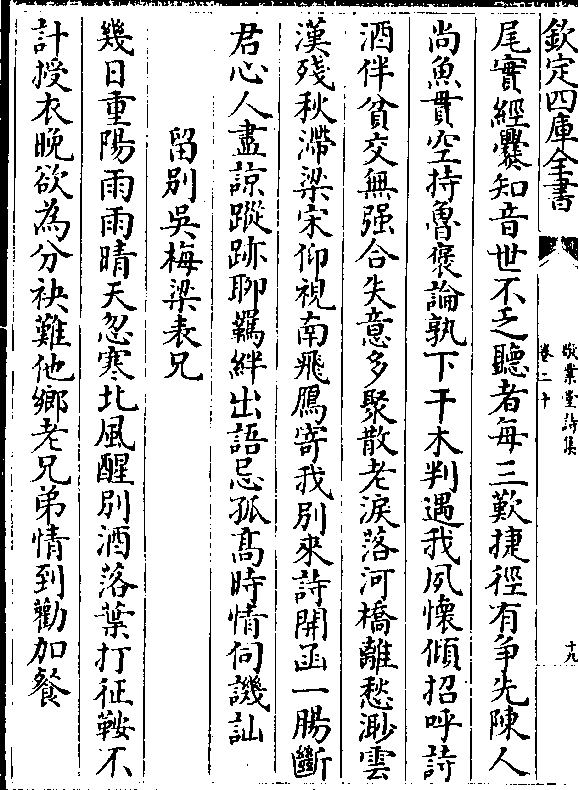 欽定四庫全書
敬業堂詩集
卷二十
十九
尾實經爨知音世不乏聽者每三歎捷徑有爭先陳人
尚魚貫空持魯褒論孰下干木判遇我夙懷傾招呼詩
酒伴貧交無强合失意多聚散老淚落河橋離愁渺雲
漢殘秋滯梁宋仰視南飛鴈寄我別來詩開函一腸斷
君心人盡諒蹤跡聊羈絆出語忌孤高時情伺譏訕
留別吳梅梁表兄
幾日重陽雨雨晴天忽寒北風醒別酒落葉打征鞍不
計授衣晚欲為分袂難他鄉老兄弟情到勸加餐